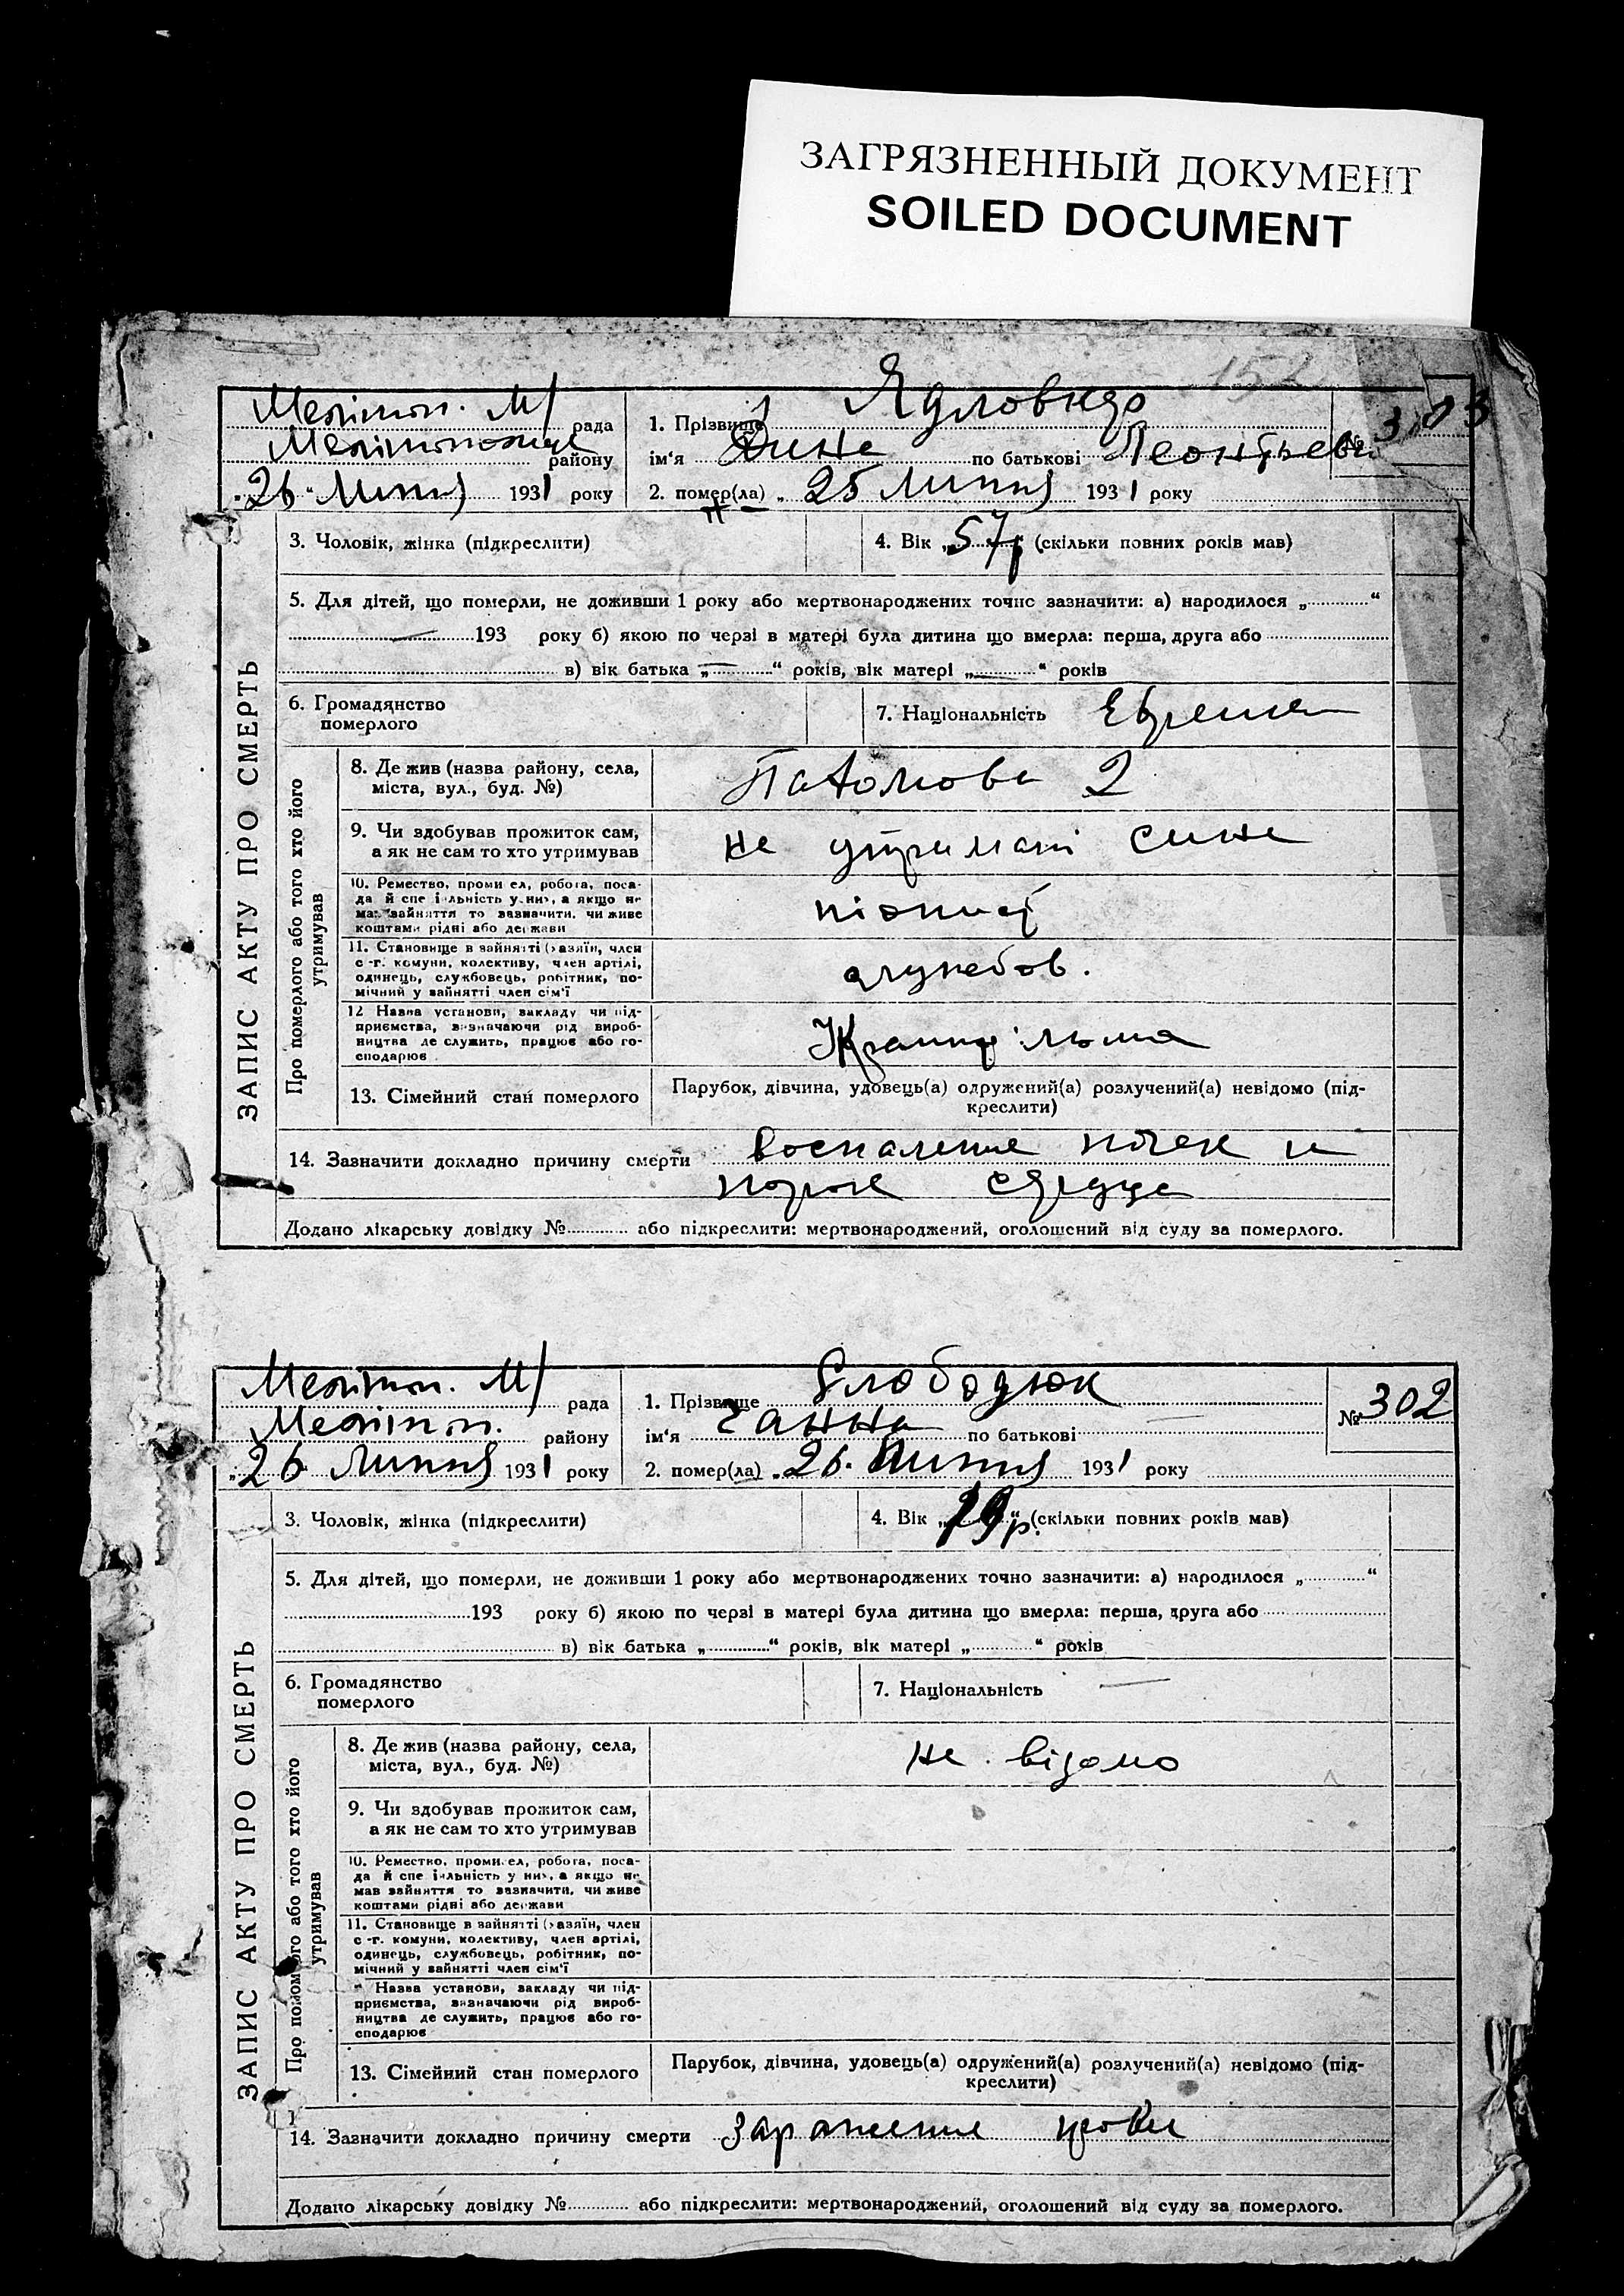 ЗАГРЯЗНЕННЫЙ ДОКУМЕНТ
SOILED DOCUMENT
152
ЗАПИС АКТУ ПРО СМЕРТЬ
Мелітоп. М/ рада
району
„26“ Липня 1931 року
1. Прізвище
ім‘я Дина по батькові Леонтьевн
№ 303
2. помер(ла) „25 Липня 1931 року
3. Чоловік, жінка (підкреслити)
4. Вік „57р“ (скільки повних років мав)
5. Для дітей, що померли, не доживши 1 року або мертвонароджених точно зазначити: а) народилося „ “
193 року б) якою по черзі в матері була дитина що вмерла: перша, друга або
в) вік батька „ “ років, вік матері „ “ років
6. Громадянство
померлого
7. Національність Евреика
Про померлого або того хто його
утримував
8. Де жив (назва району, села,
міста, вул., буд. №)
2
9. Чи здобував прожиток сам,
а як не сам то хто утримував
на утримані сина
10. Ремество, промисел, робота, поса-
да й спеціяльність у них, а якщо не
мав зайняття то зазначити, чи живе
коштами рідні або держави
11. Становище в зайнятті (хазяїн, член
с.-г. комуни, колективу, член артілі,
одинець, службовець, робітник, по-
мічний у зайнятті член сім'ї
службов.
12 Назва установи, закладу чи під-
приємства, визначаючи рід вироб-
ництва де служить, працює або го-
сподарює
13. Сімейний стан померлого
Парубок, дівчина, удовець(а) одружений(а) розлучений(а) невідомо (під-
креслити)
14. Зазначити докладно причину смерти воспаление почек и
порок сердца
Додано лікарську довідку № або підкреслити: мертвонароджений, оголошений від суду за померлого.
ЗАПИС АКТУ ПРО СМЕРТЬ
Мелітоп. М/ рада
Мелітоп. району
„26 Липня 1931 року
1. Прізвище Слободзюк
ім‘я Ганна по батькові —
№ 302
2. помер(ла) „26. Липня 1931 року
3. Чоловік, жінка (підкреслити)
4. Вік „ р.“ (скільки повних років мав)
5. Для дітей, що померли, не доживши 1 року або мертвонароджених точно зазначити: а) народилося „ “
193 року б) якою по черзі в матері була дитина що вмерла: перша, друга або
в) вік батька „ “ років, вік матері „ “ років
6. Громадянство
померлого
7. Національність —
Про померлого або того хто його
утримував
8. Де жив (назва району, села,
міста, вул., буд. №)
не відомо
9. Чи здобував прожиток сам,
а як не сам то хто утримував
10. Ремество, промисел, робота, поса-
да й спеціяльність у них, а якщо не
мав зайняття то зазначити, чи живе
коштами рідні або держави
11. Становище в зайнятті (хазяїн, член
с.-г. комуни, колективу, член артілі,
одинець, службовець, робітник, по-
мічний у зайнятті член сім'ї
Назва установи, закладу чи під-
приємства, визначаючи рід вироб-
ництва де служить, працює або го-
сподарює
13. Сімейний стан померлого
Парубок, дівчина, удовець(а) одружений(а) розлучений(а) невідомо (під-
креслити)
14. Зазначити докладно причину смерти заражение крови
Додано лікарську довідку № або підкреслити: мертвонароджений, оголошений від суду за померлого.